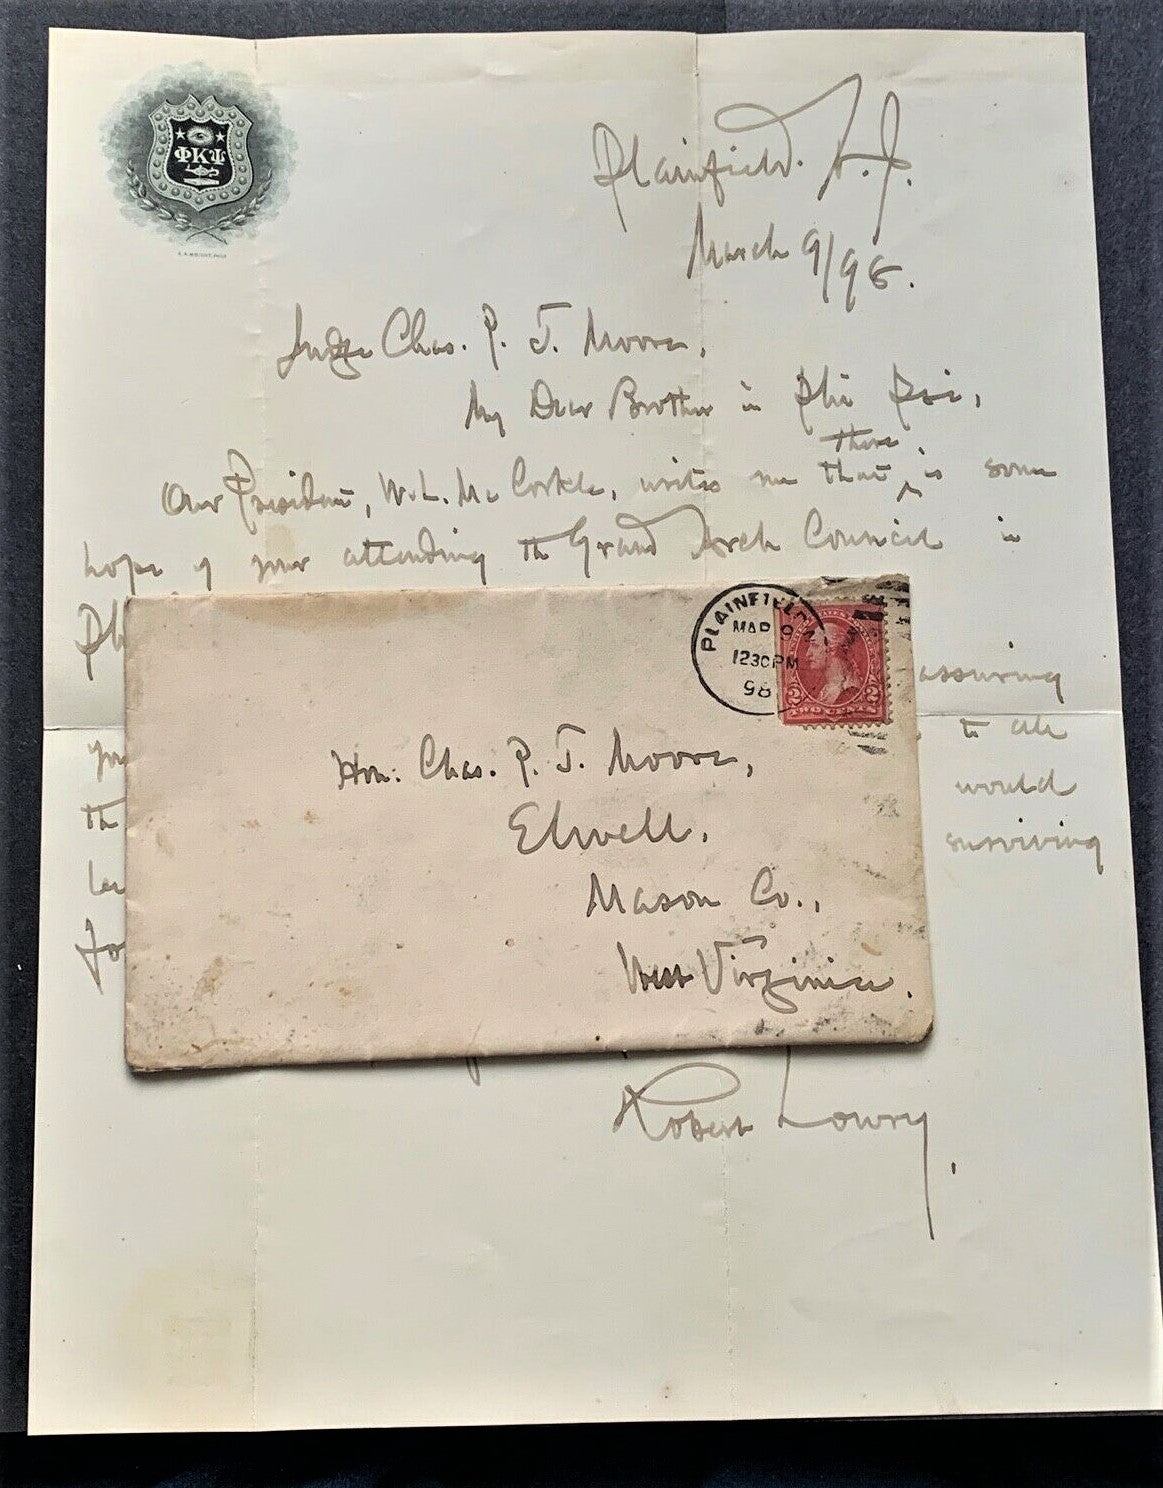 ΦΚΨ
Plainfield. N. J.
March 9/98.
Judge Chas. P. T. Moore,
My Dear Brother in Phi Psi,
there
Our President, W. L. McCorkle, writes me that ^ is some
hope of your attending the Grand Arch Council in
assuring
you
to all
the
would
surviving
PLAINFIELD
MAR 9
1230PM
98
2 2
TWO CENTS
Hon: Chas. P. T. Moore,
Elwell.
Mason Co.,
West Virginia.
Robert Lowry.